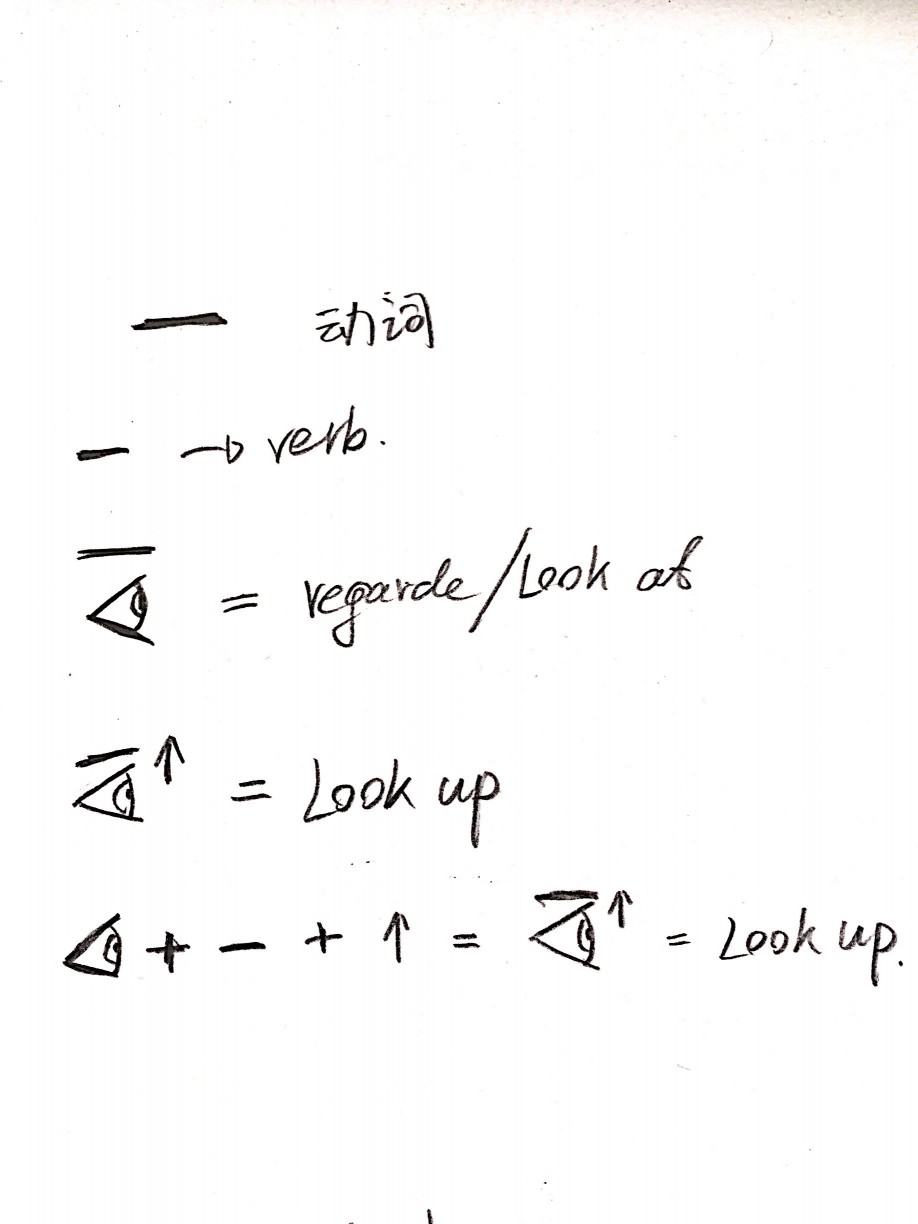 — 动词
- → verb.
= regarde/Look at
↑ = Look up
+ - + ↑ = ↑ = Look up.